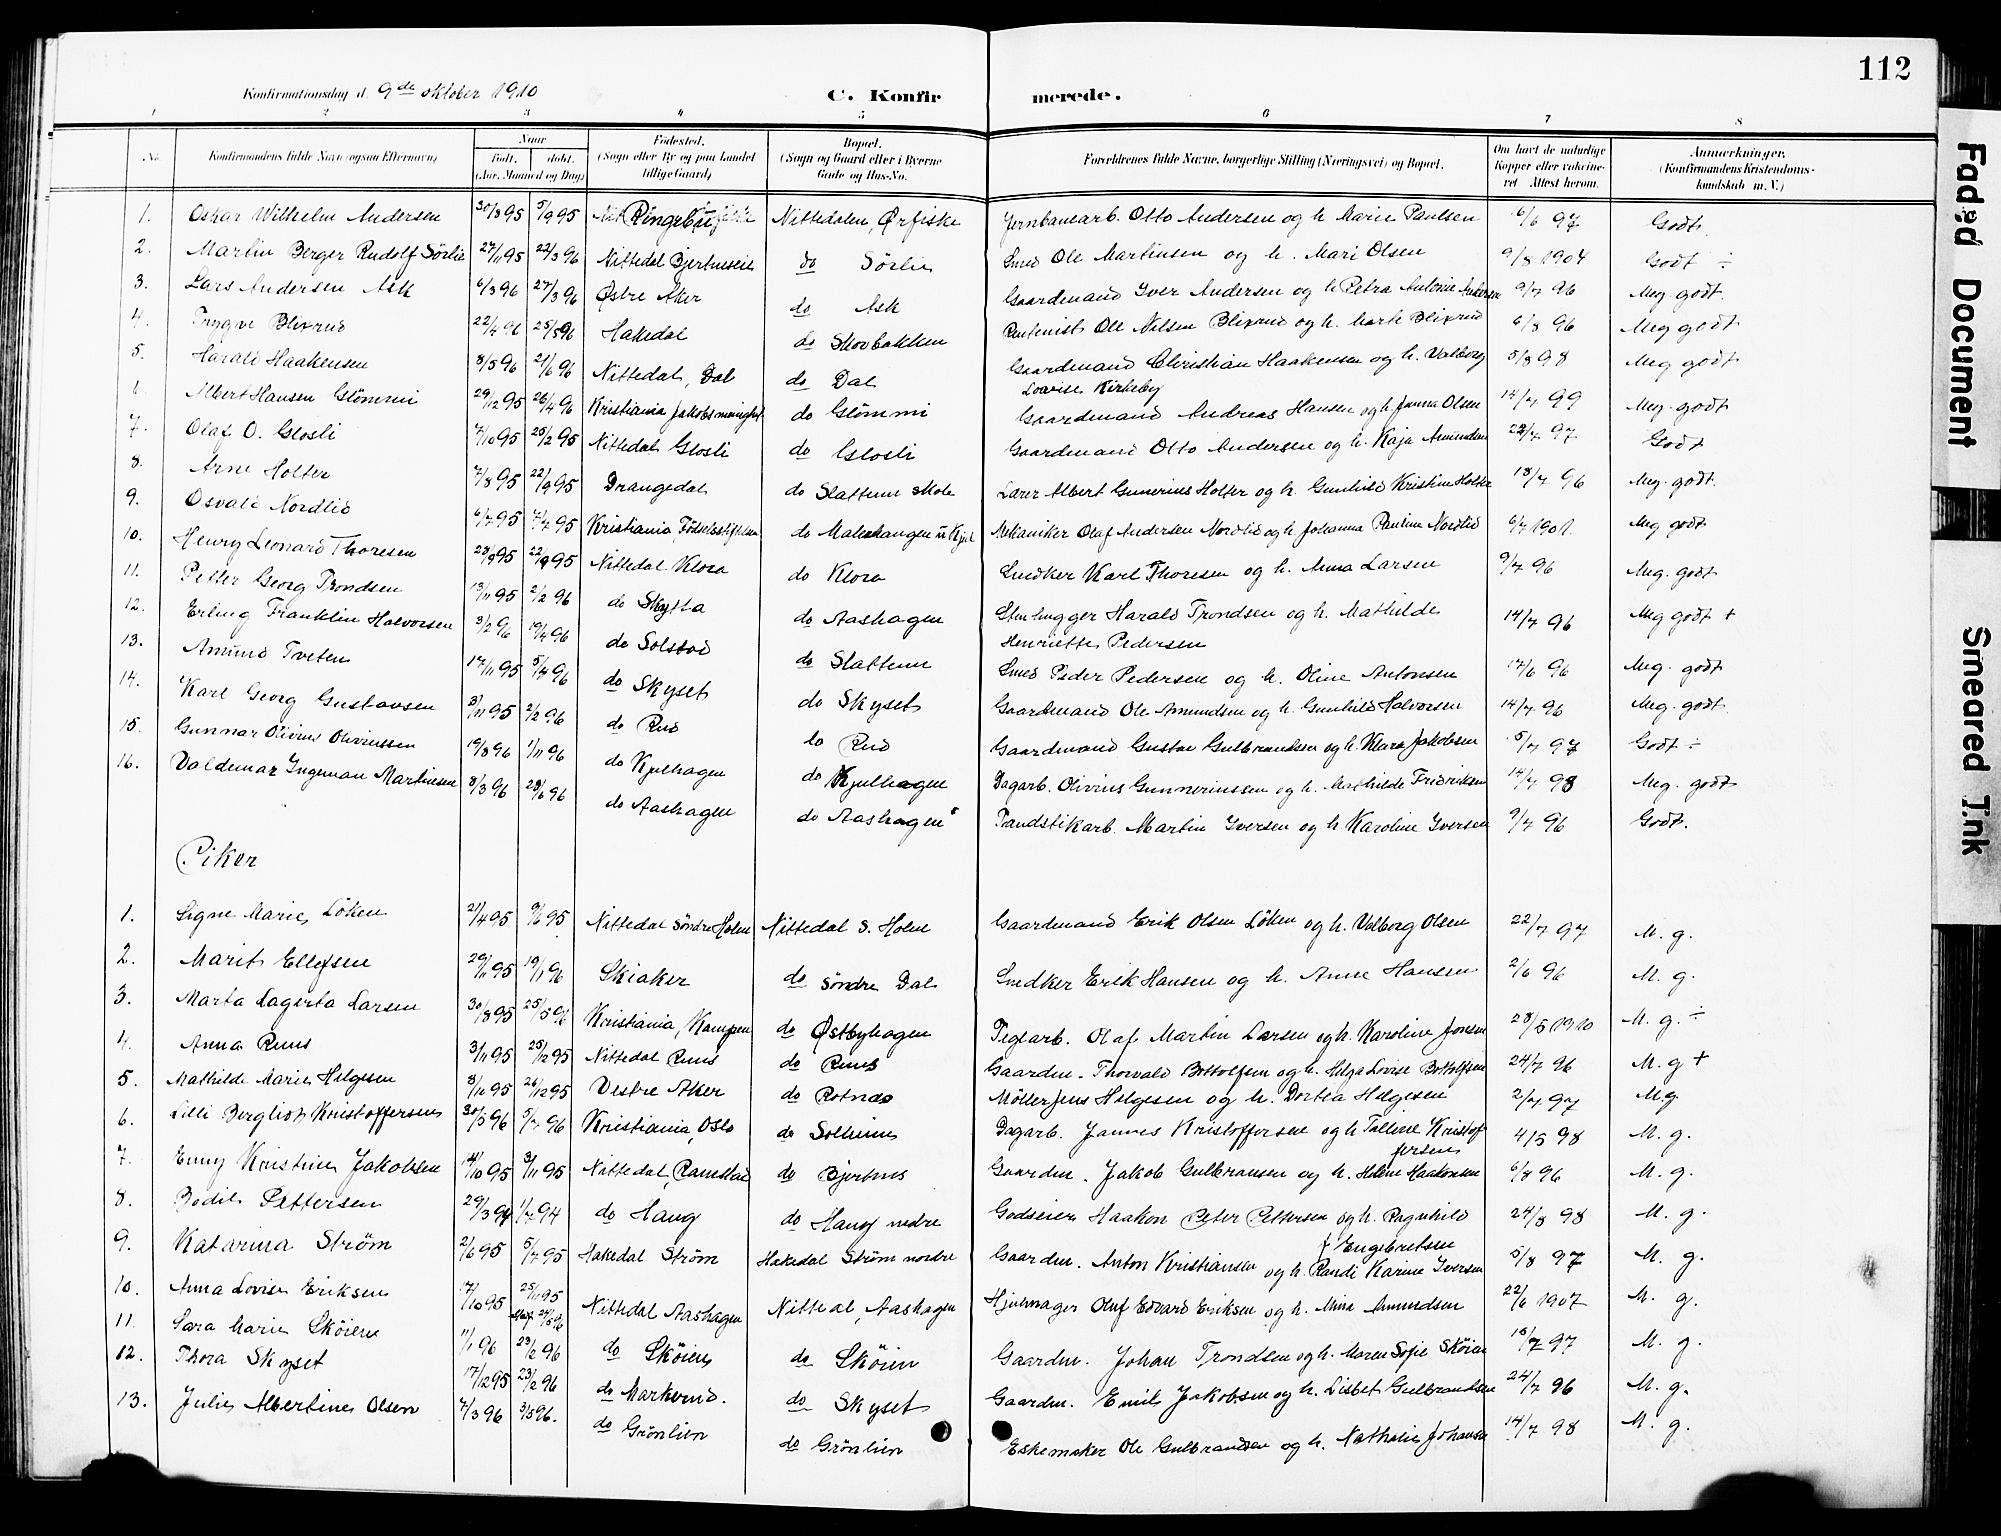 112
Konfirmationsdag d. 9de oktober 1910 C. Konfirmerede.
1 2 3 4 5 6 7 8
No. Konfirmandens fulde Navn (ogsaa Efternavn) Naar født. døbt. (Aar, Maaned og Dag) Fødested. (Sogn eller By og paa Landet tillige Gaard) Bopæl. (Sogn og Gaard eller i Byerne Gade og Hus-No. Forældrenes fulde Navne, borgerlige Stilling (Næringsvei) og Bopæl. Om havt de naturlige Kopper eller vakcineret Attest herom. Anmærkninger. (Konfirmandens Kristendomskundskab m. V.)
1. Oskar Wilhelm Andersen 30/8 95 5/9 95 Ringebu Nittedalen, Ørfiske Jernbanearb. Otto Andersen og h. Marie Paulsen 16/6 97 Godt
2. Martin Berger Rudolf Sörlie 27/11 95 22/3 96 Nittedal Bjertneseie do Sörlie Smed Ole Martinsen og h. Mari Olsen 9/8 1904 Godt ÷
3. Lars Andersen Ask 6/3 96 27/3 96 Østre Aker do Ask Gaardmand Iver Andersen og h. Petra Antonie Andersen 9/7 96 Meg godt.
4. Trygve Blixrud 22/4 96 25/5 96 Hakedal do Skovbakken Rentenist Ole Nilsen Blixrud og h. Marte Blixrud 6/8 96 Meg godt
5. Harald Haakensen 8/5 96 21/6 96 Nittedal, Dal do Dal Gaardmand Christian Haakensen og h. Valborg Lovise Kirkeby 5/8 98 Meg godt
6 Albert Hansen Glömmi 29/12 95 26/4 96 Kristiania Jakobs menighet do Glömmi Gaardmand Andreas Hansen og h. Janna Olsen 14/7 99 Meg. godt
7. Olaf O. Glosli 7/10 95 25/2 95 Nittedal Glosli do Glosli Gaardmand Otto Andersen og h. Kaja Amundsen 22/7 97 Godt
8. Arne Holter 7/8 95 22/9 95 Drangedal do Slattum Skole Lærer Albert Gunerius Holter og h. Gunhild Kristine Holter 18/7 96 Meg. godt.
9. Osvald Nordlid 6/7 95 7/7 95 Kristiania Fødselsstiftelsen do Maleshaugen u. Kjul Mekaniker Olaf Andersen Nordlid og h. Johanna Pauline Nordlid 6/7 1901. Meg godt
10. Henry Leonard Thoresen 23/9 95 22/9 95 Nittedal Klora do Klora Snedker Karl Thoresen og h. Anna Larsen 9/7 96 Meg. godt
11. Petter Georg Trondsen 13/11 95 2/2 96 do Skytta do Aashagen Stenhugger Harald Trondsen og h. Mathilde Henriette Pedersen 14/7 96 Meg godt +
12. Erling Franklin Halvorsen 3/2 96 19/4 96 do Solstad do Slattum Smed Peder Pedersen og h. Oline Antonsen 17/6 96 Meg. godt
13. Amund Tveten 17/11 95 5/4 96 do Skyset do Skyset Gaardmand Ole Amundsen og h. Gunhild Halvorsen 14/7 96 Meg. godt
14. Karl Georg Gustavsen 3/11 95 2/2 96 do Rud do Rud Gaardmand Gustav Gulbrandsen og h. Klara Jakobsen 5/7 97 Godt ÷
15. Gunnar Olivius Oliviussen 19/8 96 1/11 96 do Kjulhagen do Kjulhagen Dagarb. Olivius Gunneriussen og h. Mathilde Fridriksen 14/7 98 Meg. godt
16. Valdemar Ingeman Martinsen 8/3 96 28/6 96 do Aashagen do Aashagen Tandstikarb. Martin Iversen og h Karoline Iversen 9/7 96 Godt.
Piker
1. Signe Marie Löken 21/4 95 9/6 95 Nittedal Söndre Holm Nittedal S. Holm Gaardmand Erik Olsen Löken og h. Valborg Olsen 22/7 97 M. g.
2. Marit Ellefsen 29/11 95 19/1 96 Skiaker do Söndre Dal Snedker Erik Hansen og h. Anne Hansen 2/6 96 M. g.
3. Marta Lagerta Larsen 30/8 95 25/5 96 Kristiania, Kampen do Østbyhagen Teglarb. Olaf Martin Larsen og h. Karoline Jonsen 28/5 1910 M. g. ÷
4. Anna Ruus 3/11 95 25/12 95 Nittedal Ruus do Ruus Gaardm. Thorvald Bottolfsen og h. Helga Lovise Bottolfsen 24/7 96 M. g +
5. Mathilde Marie Helgesen 8/10 95 26/12 95 Vestre Aker do Rotnes Möller Jens Helgesen og h. Dortea Helgesen 2/7 97 M.g.
6. Lilli Bergliot Kristoffersen 30/5 96 5/7 96 Kristiania, Oslo do Solheim Dagarb. Jannes Kristoffersen og h Talline Kristoffersen 4/5 98 M. g.
7. Enny Kristine Jakobsen 14/10 95 3/11 95 Nittedal, Ramstad do Bjertnes Gaardm. Jakob Gulbransen og h. Helene Haakonsen 6/8 96 M. g.
8. Bodil Pettersen 29/3 94 1/7 94 do Haug do Haug nedre Godseier Haakon Peter Pettersen og h. Ragnhild f Engebretsen 24/8 98 M. g.
9. Katarina Ström 2/6 95 5/7 95 Hakedal Ström Hakedal Ström nordre Gaardm. Anton Kristiansen og h. Randi Karine Iversen 5/8 97 M. g.
10. Anna Lovise Eriksen 17/10 95 25/11 95 24/5 96 Nittedal Aashagen Nitteal, Aashagen Hjulmager Oluf Edvard Eriksen og h. Mina Amundsen 22/6 1907 M. g.
11. Sara Marie Sköien 11/1 96 23/2 96 do Sköien do Sköien Gaardm. Johan Trondsen og h. Maren Sofie Sköien 15/7 97 M. g.
12. Thora Skyset 17/12 95 23/2 96 do Markerud. do Skyset Gaardm. Emil Jakobsen og h. Lisbet Gulbrandsen 24/7 96 M. g.
13. Julie Albertine Olsen 7/3 96 3/5 96. do Grönlien do Grönlien Eskemaker Ole Gulbrandsen og h. Nathalie Johansen 14/7 98 M. g.
Faded Document
Smeared Ink